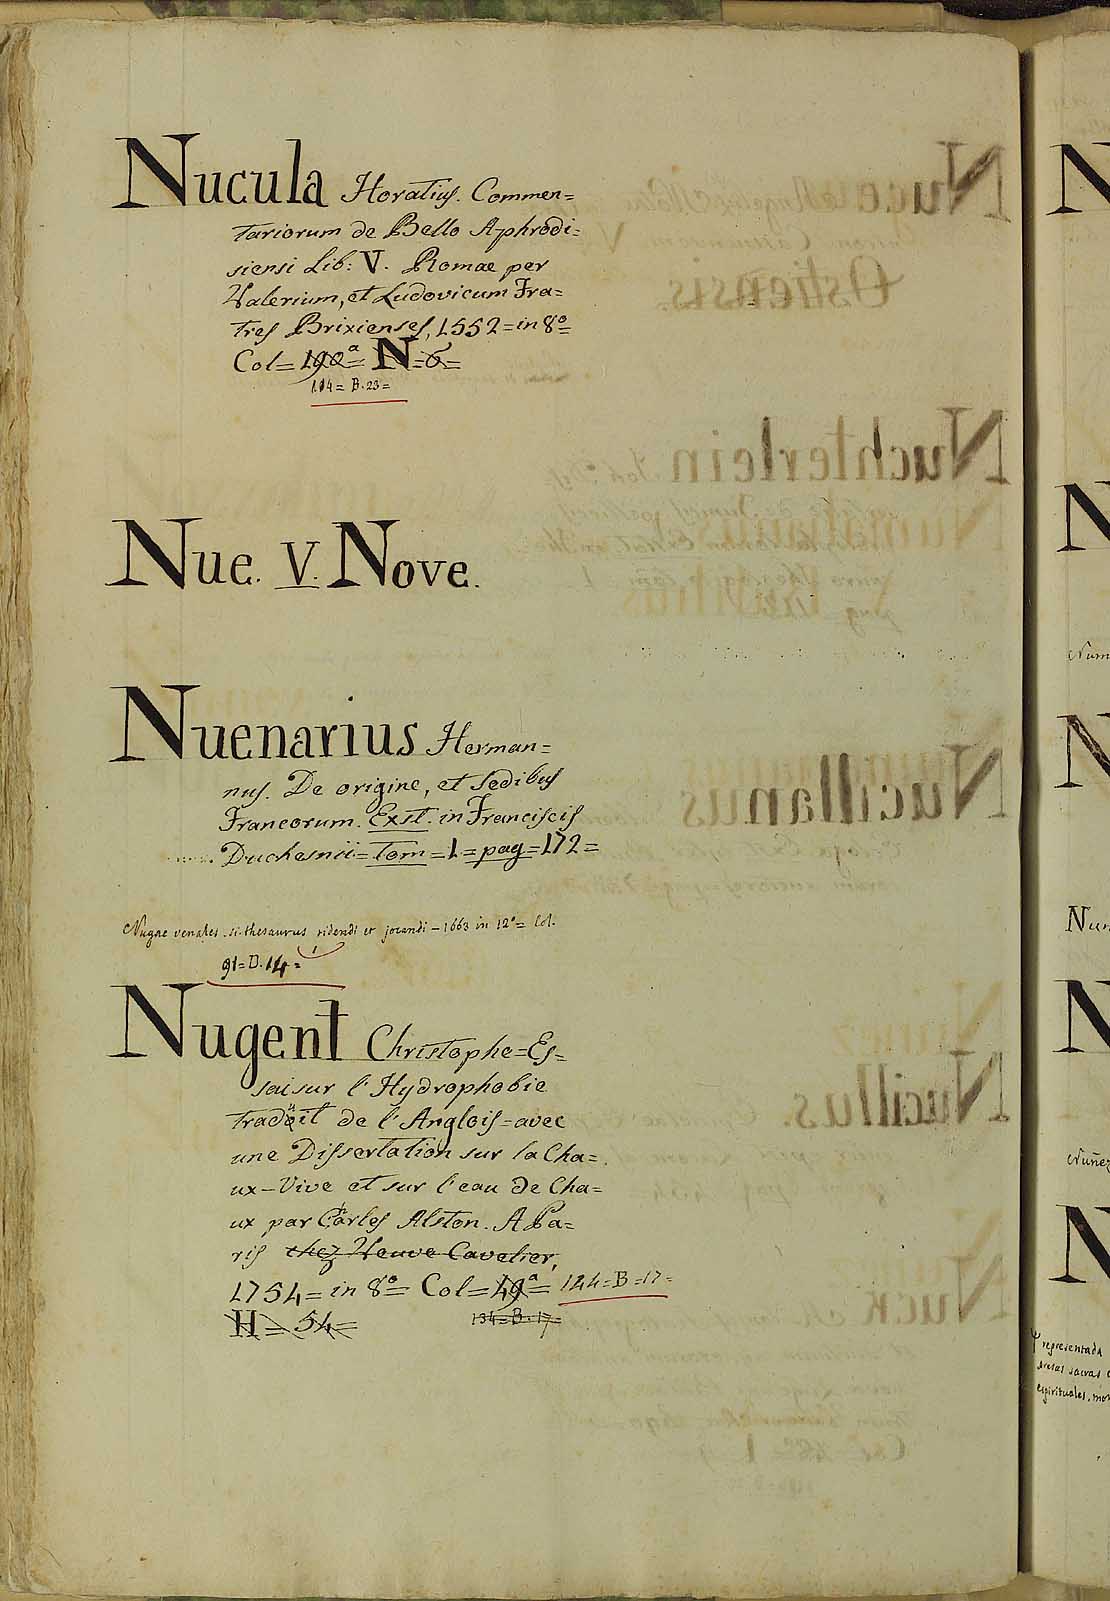 Nucula Horatius. Commen=
tariorum de Bello Aphrodi=
siensi Lib: V. Romae per
Valerium, et Ludovicum Fra=
tres Brixienses, 1552=in 8º=
Col= 190ª= N=6=
114= B.23=
Nue. V. Nove.
Nuenarius Herman=
nus. De origine, et Sedibus
Francorum. Exst. in Franciscis
Duchesnii=Tom=1=pag=172=
Nugae venales. si. thesaurus ridendi et jocandi - 1663 in 12º= Col.
91=B.14=
Nugent Christophe=Es=
sai sur l'Hydrophobie
traduit de l'Anglois=avec
une Dissertation sur la Cha=
ux-Vive et sur l'eau de Cha=
ux par Carles Alston. A Pa=
ris chez Veuve Cavelier,
1754=in 8º= Col=49ª= 124=B=17=
H=54= 134=B.17=
Num
Nun
Nuñez
representada
sacras
espirituales. mor